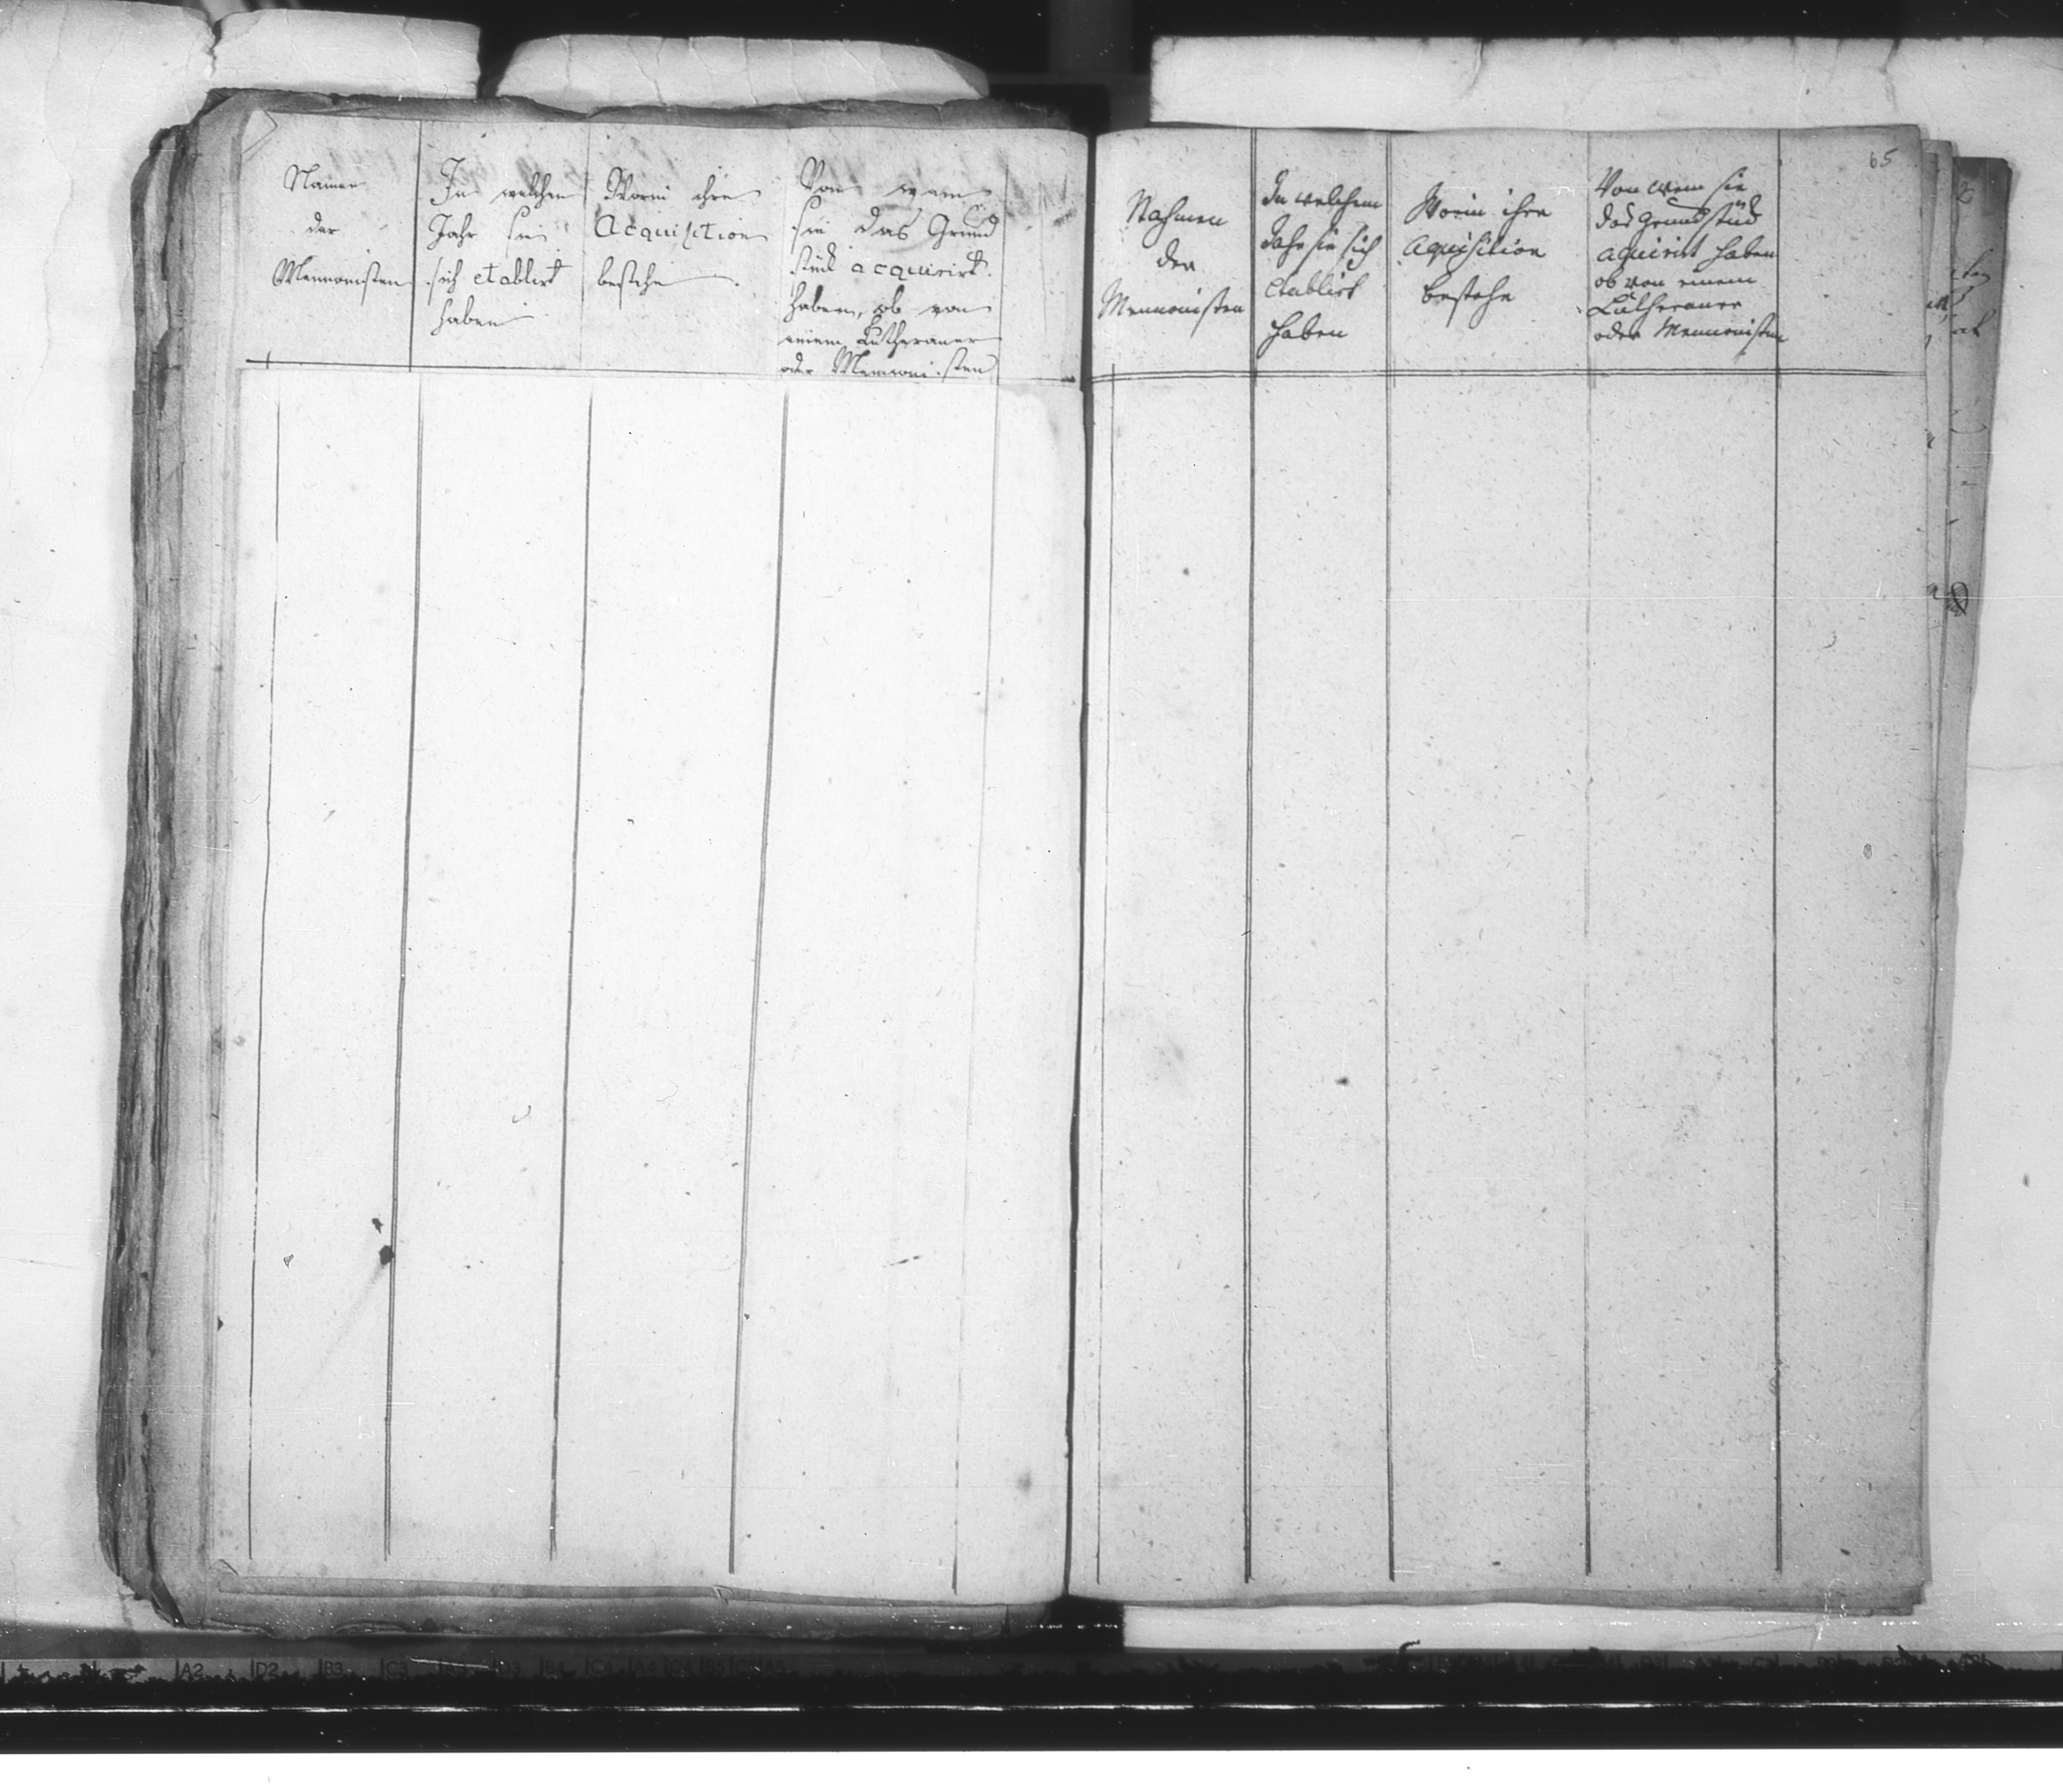 Namen
der
Mennonisten
In welchen
Jahr sie
sich etablirt
haben
Worin ihre
Acquisition
bestehe
Von wem
sie das Grund
stück acquirirt
haben, ob von
einem Lutheraner
oder Mennonisten
65
Nahmen
der
Mennonisten
In welchem
Jahr sie sich
etablirt
haben
Worin ihre
Aquisition
bestehe
Von wem sie
das Grundstück
aquirirt haben
ob von einem
Lutheraner
oder Mennonisten